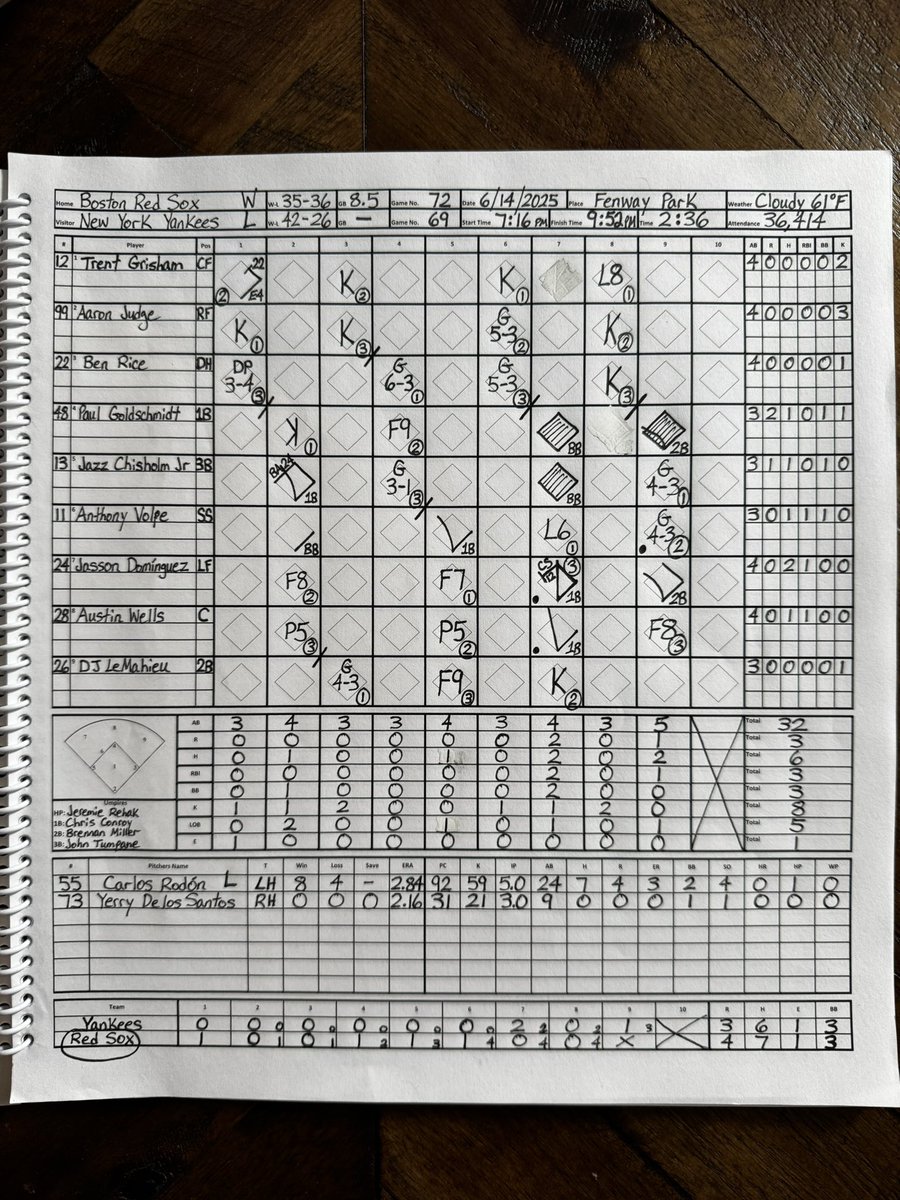 Home Boston Red Sox W W-L 35-36 GB 8.5 Game No. 72 Date 6/14/2025 Place Fenway Park Weather Cloudy 61°F
Visitor New York Yankees L W-L 42-26 GB — Game No. 69 Start Time 7:16 PM Finish Time 9:52PM Time 2:36 Attendance 36,414
# Player Pos 1 2 3 4 5 6 7 8 9 10 AB R H RBI BB K
12 1 Trent Grisham CF 22 E4 2 K 2 K 1 L8 1 4 0 0 0 0 2
99 2 Aaron Judge RF K 1 K 3 G 5-3 2 K 2 4 0 0 0 0 3
22 3 Ben Rice DH DP 3-4 3 G 6-3 1 G 5-3 3 K 3 4 0 0 0 0 1
48 4 Paul Goldschmidt 1B K 1 F9 2 BB 2B 3 2 1 0 1 1
13 5 Jazz Chisholm Jr 3B 24 1B G 3-1 3 BB G 4-3 1 3 1 1 0 1 0
11 6 Anthony Volpe SS BB 1B L6 1 G 4-3 2 3 0 1 1 1 0
24 7 Jasson Domínguez LF F8 2 F7 1 CS 3 1B 2B 4 0 2 1 0 0
28 8 Austin Wells C P5 3 P5 2 1B F8 3 4 0 1 1 0 0
26 9 DJ LeMahieu 2B G 4-3 1 F9 3 K 2 3 0 0 0 0 1
AB 3 4 3 3 4 3 4 3 5 Total 32
R 0 0 0 0 0 0 2 0 1 Total 3
H 0 1 0 0 1 0 2 0 2 Total 6
RBI 0 0 0 0 0 0 2 0 1 Total 3
BB 0 1 0 0 0 0 2 0 0 Total 3
K 1 1 2 0 0 1 1 2 0 Total 8
LOB 0 2 0 0 1 0 1 0 1 Total 5
E 1 0 0 0 0 0 0 0 0 Total 1
7 8 9 6 4 5 3 1 2
Umpires
HP: Jeremie Rehak
1B: Chris Conroy
2B: Brennan Miller
3B: John Tumpane
# Pitchers Name T Win Loss Save ERA PC K IP AB H R ER BB SO HR HP WP
55 Carlos Rodón L LH 8 4 – 2.84 92 59 5.0 24 7 4 3 2 4 0 1 0
73 Yerry De los Santos RH 0 0 0 2.16 31 21 3.0 9 0 0 0 1 1 0 0 0
Team 1 2 3 4 5 6 7 8 9 10 R H E BB
Yankees 0 0 0 0 0 0 0 0 0 0 0 2 2 0 2 1 3 3 6 1 3
Red Sox 1 0 1 0 1 1 2 1 3 1 4 0 4 0 4 x 4 7 1 3